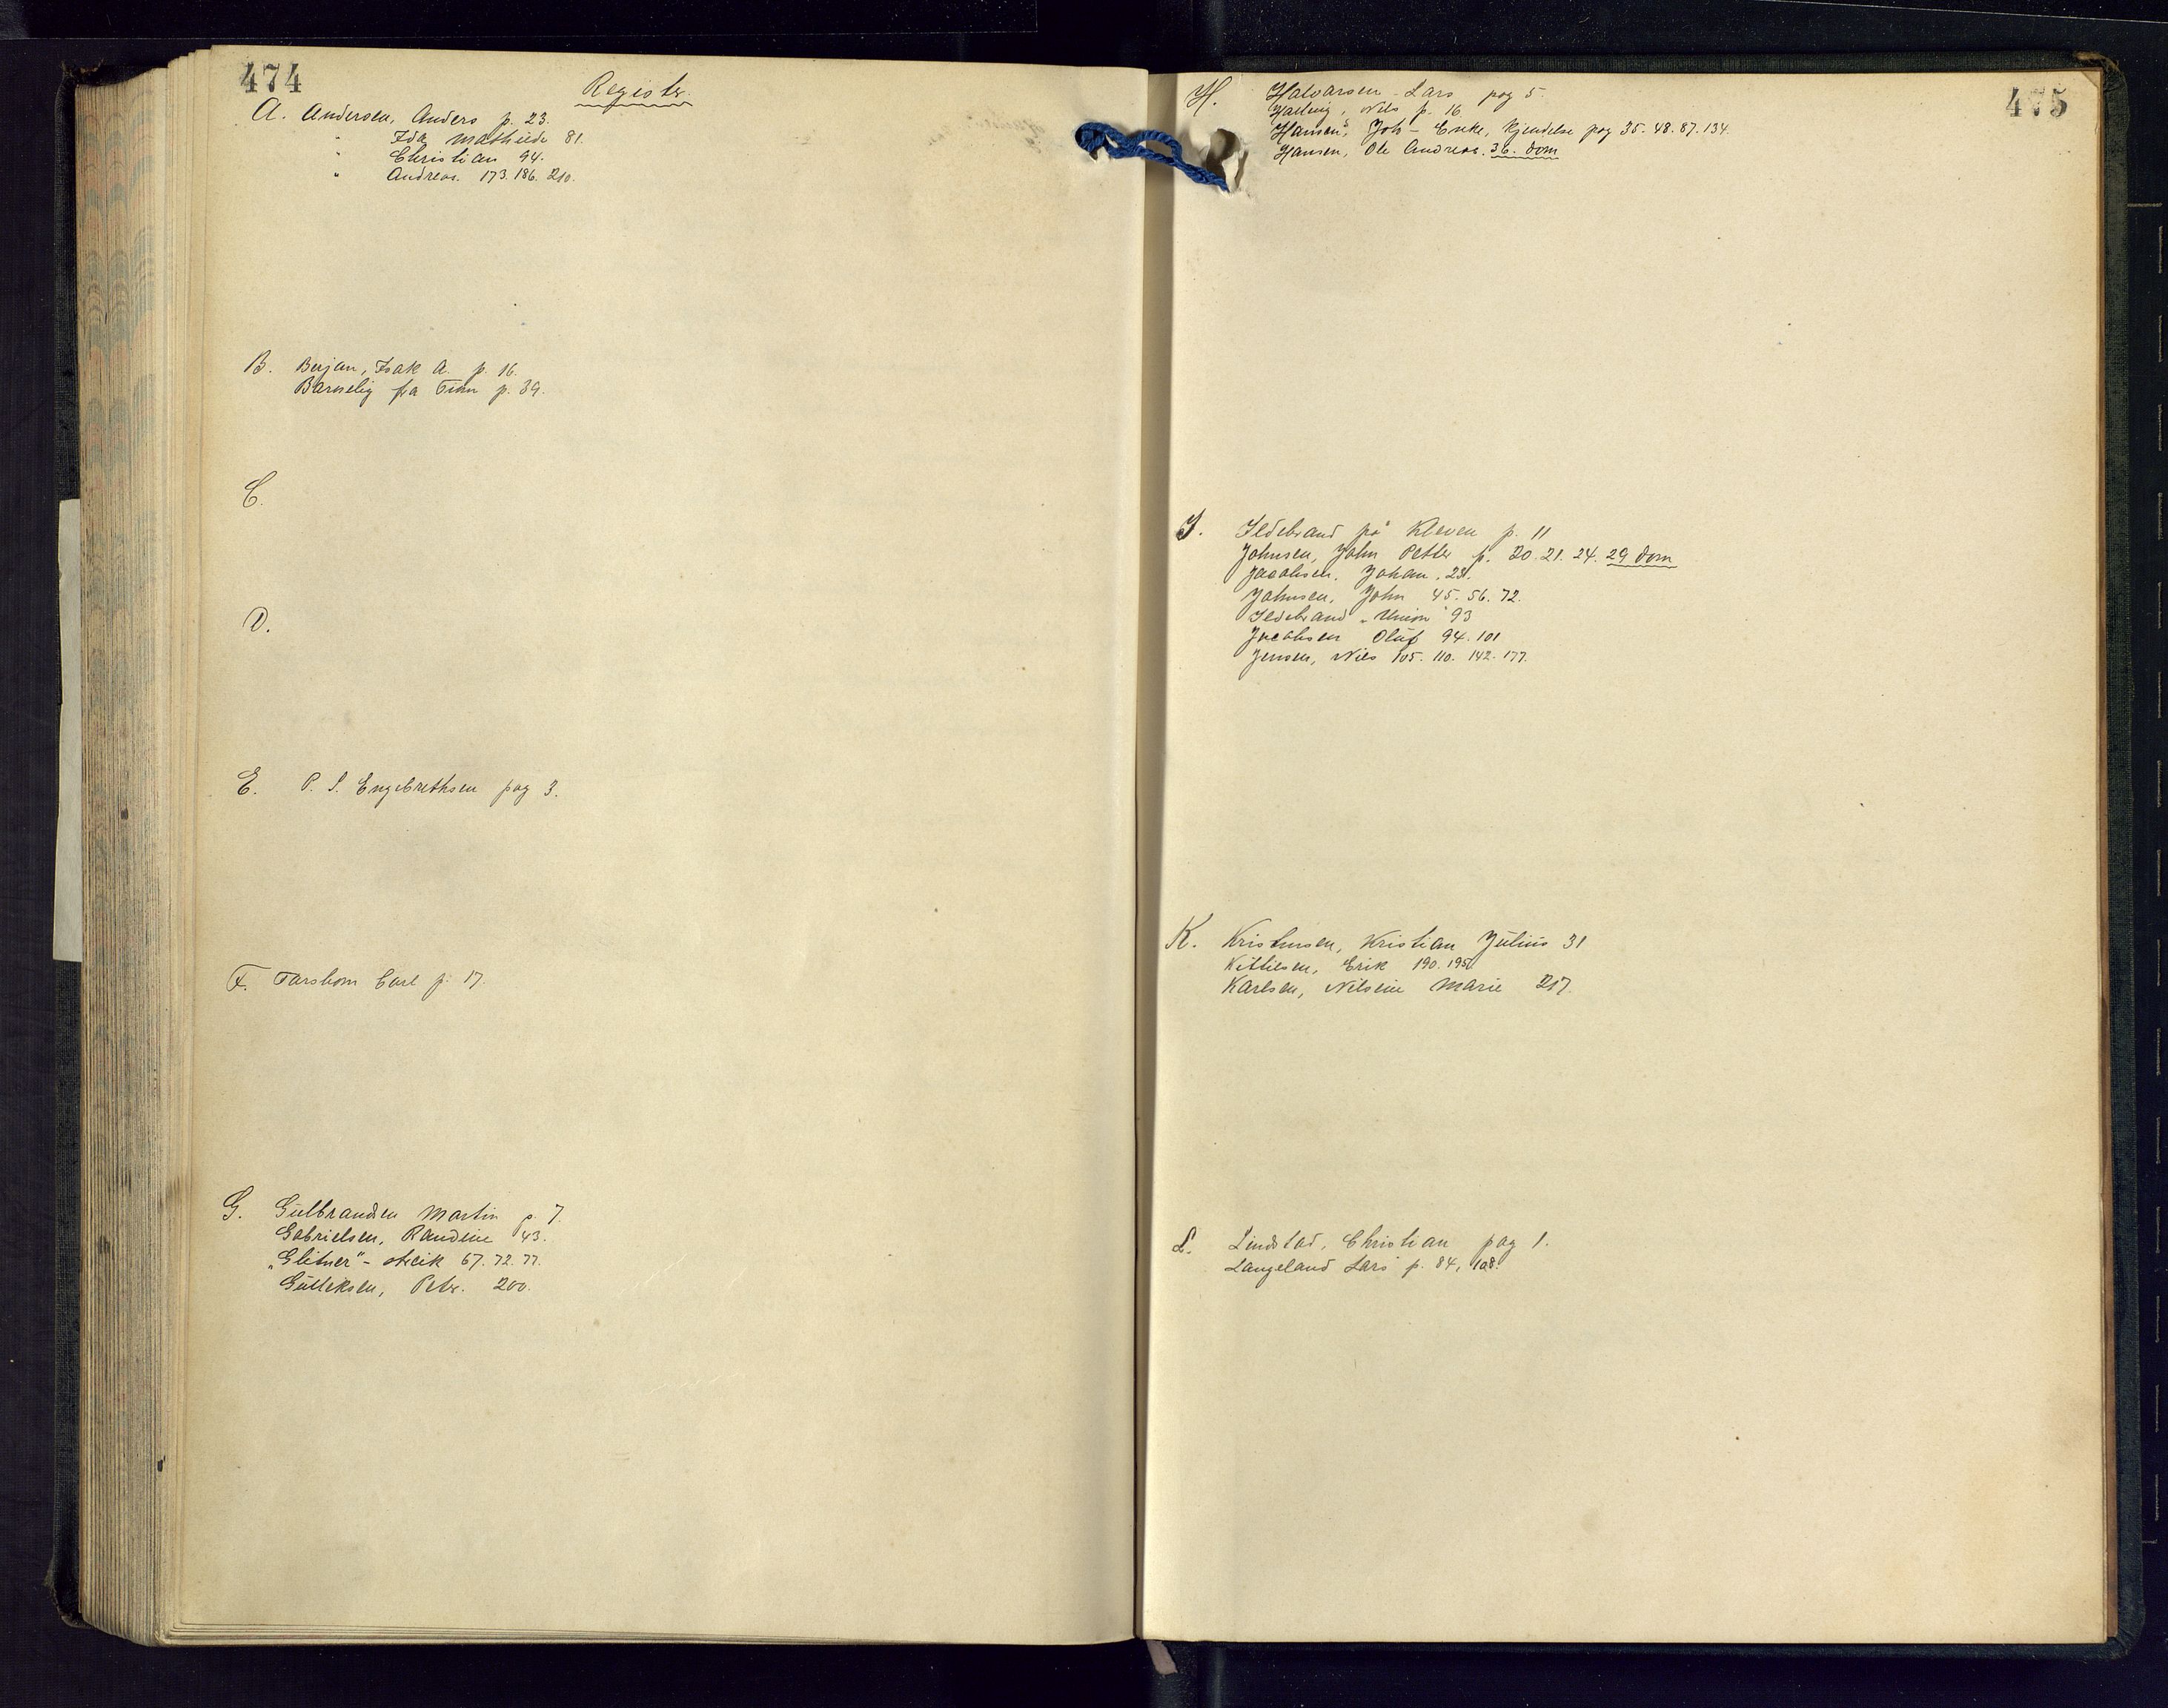 474
Register.
A. Andersen, Anders p. 23.
" Ida Mathilde 81.
" Christian 94.
" Andreas. 173. 186. 210.
B. Isak A. p. 16.
Barnelig fra Tinn p. 39.
C.
D.
E. P. S. Engebrethsen pag 3.
F. Farsbom Carl p. 17.
G. Gulbrandsen Martin p. 7.
Gabrielsen, Randine 43.
„Glitner" - streik 67. 72. 77.
Gulliksen, Petr. 200.
475
H. Halvarsen - Lars pag 5.
Nils p. 16.
Hansen, Joh - Enke, Kjendelse pag 35. 48. 87. 134.
Hansen, Ole Andreas. 36. dom
I. Ildebrand på Kleven p. 11
Johnsen, John Petter p. 20. 21. 24. 29 dom
Jacobsen. Johan. 23.
Johnsen, John 45. 56. 72.
Ildebrand „Union" 93
Jacobsen Oluf 94. 101
Jensen, Nils 105. 110. 142. 177.
K. Kristensen, Kristian Julius 31
Kittilsen, Erik 190. 195.
Karlsen, Nilsine Marie 217.
L. Lindstad, Christian pag 1.
Langeland Lars p. 84, 108.